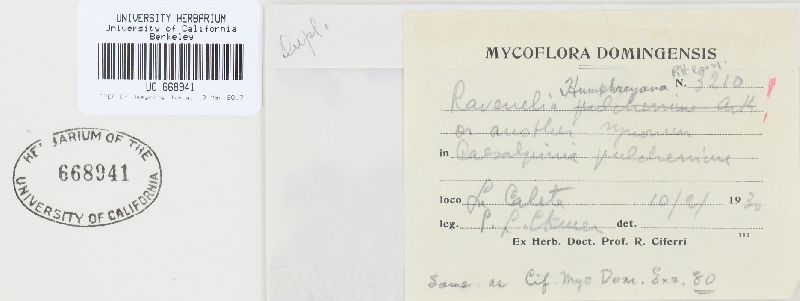 UNIVERSITY HERBARIUM
University of California
Berkeley
UC 668941
HERBARIUM OF THE
668941
UNIVERSITY OF CALIFORNIA
Dupl.
MYCOFLORA DOMINGENSIS
N. 3210
Humphreyana
Ravenelia pulcherrima Arth
or another
in Caesalpinia pulcherrima
loco La Caleta 10/2/ 1930
leg. E. L. Ekman det.
Ex Herb. Doct. Prof. R. Ciferri
Same as Cif. Myc. Dom. Exs. 80